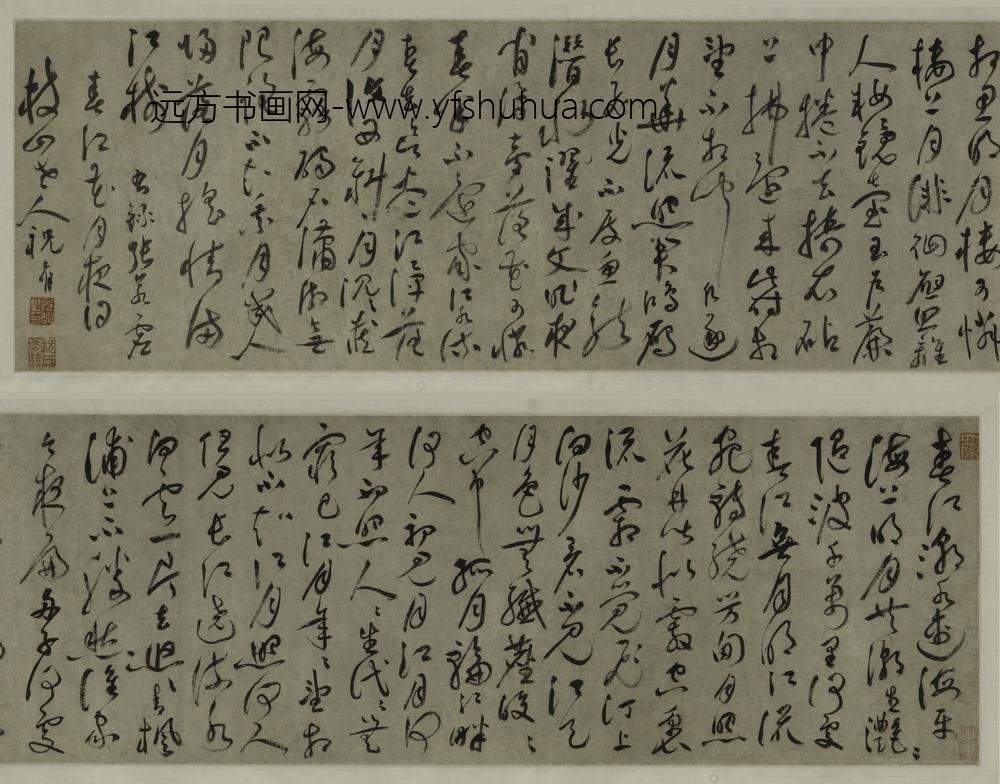 春江潮水連海平
海上明月共潮生灔灔
隨波千萬里何處
春江無月明江流
宛轉繞芳甸月照
花林皆似霰空裏
流霜不覺飛汀上
白沙看不見江天
月色無纖塵皎皎
空中孤月輪江畔
何人初見月江月何
年初照人人生代代無
窮已江月年年望相
似不知江月照何人
但見長江送流水
白雲一片去悠悠青楓
浦上不勝愁誰家
今夜扁舟子何處
相思明月樓可憐
樓上月徘徊應照離
人妝鏡臺玉戶簾
中捲不去擣衣砧
上拂還來此時相
望不相聞願逐
月華流照君鴻雁
長飛光不度魚龍
潛躍水成文昨夜
閒潭夢落花可憐
春半不還家江水流
春去欲盡江潭落
月復西斜斜月沉沉藏
海霧碣石瀟湘無
限路不知乘月幾人
歸落月搖情滿
江樹 右錄張若虛
春江花月夜詞
枝山老人祝允明
远方书画网-www.yfshuhua.com